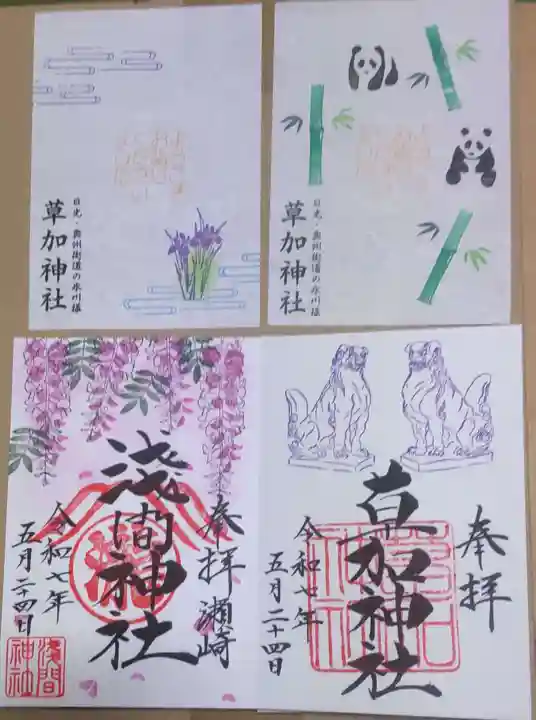 日光・奥州街道の氷川様
草加神社
日光・奥州街道の氷川様
草加神社
奉拝 瀬崎
浅間神社
令和七年
五月二十四日
浅間
神社
奉拝
草加神社
令和七年
五月二十四日